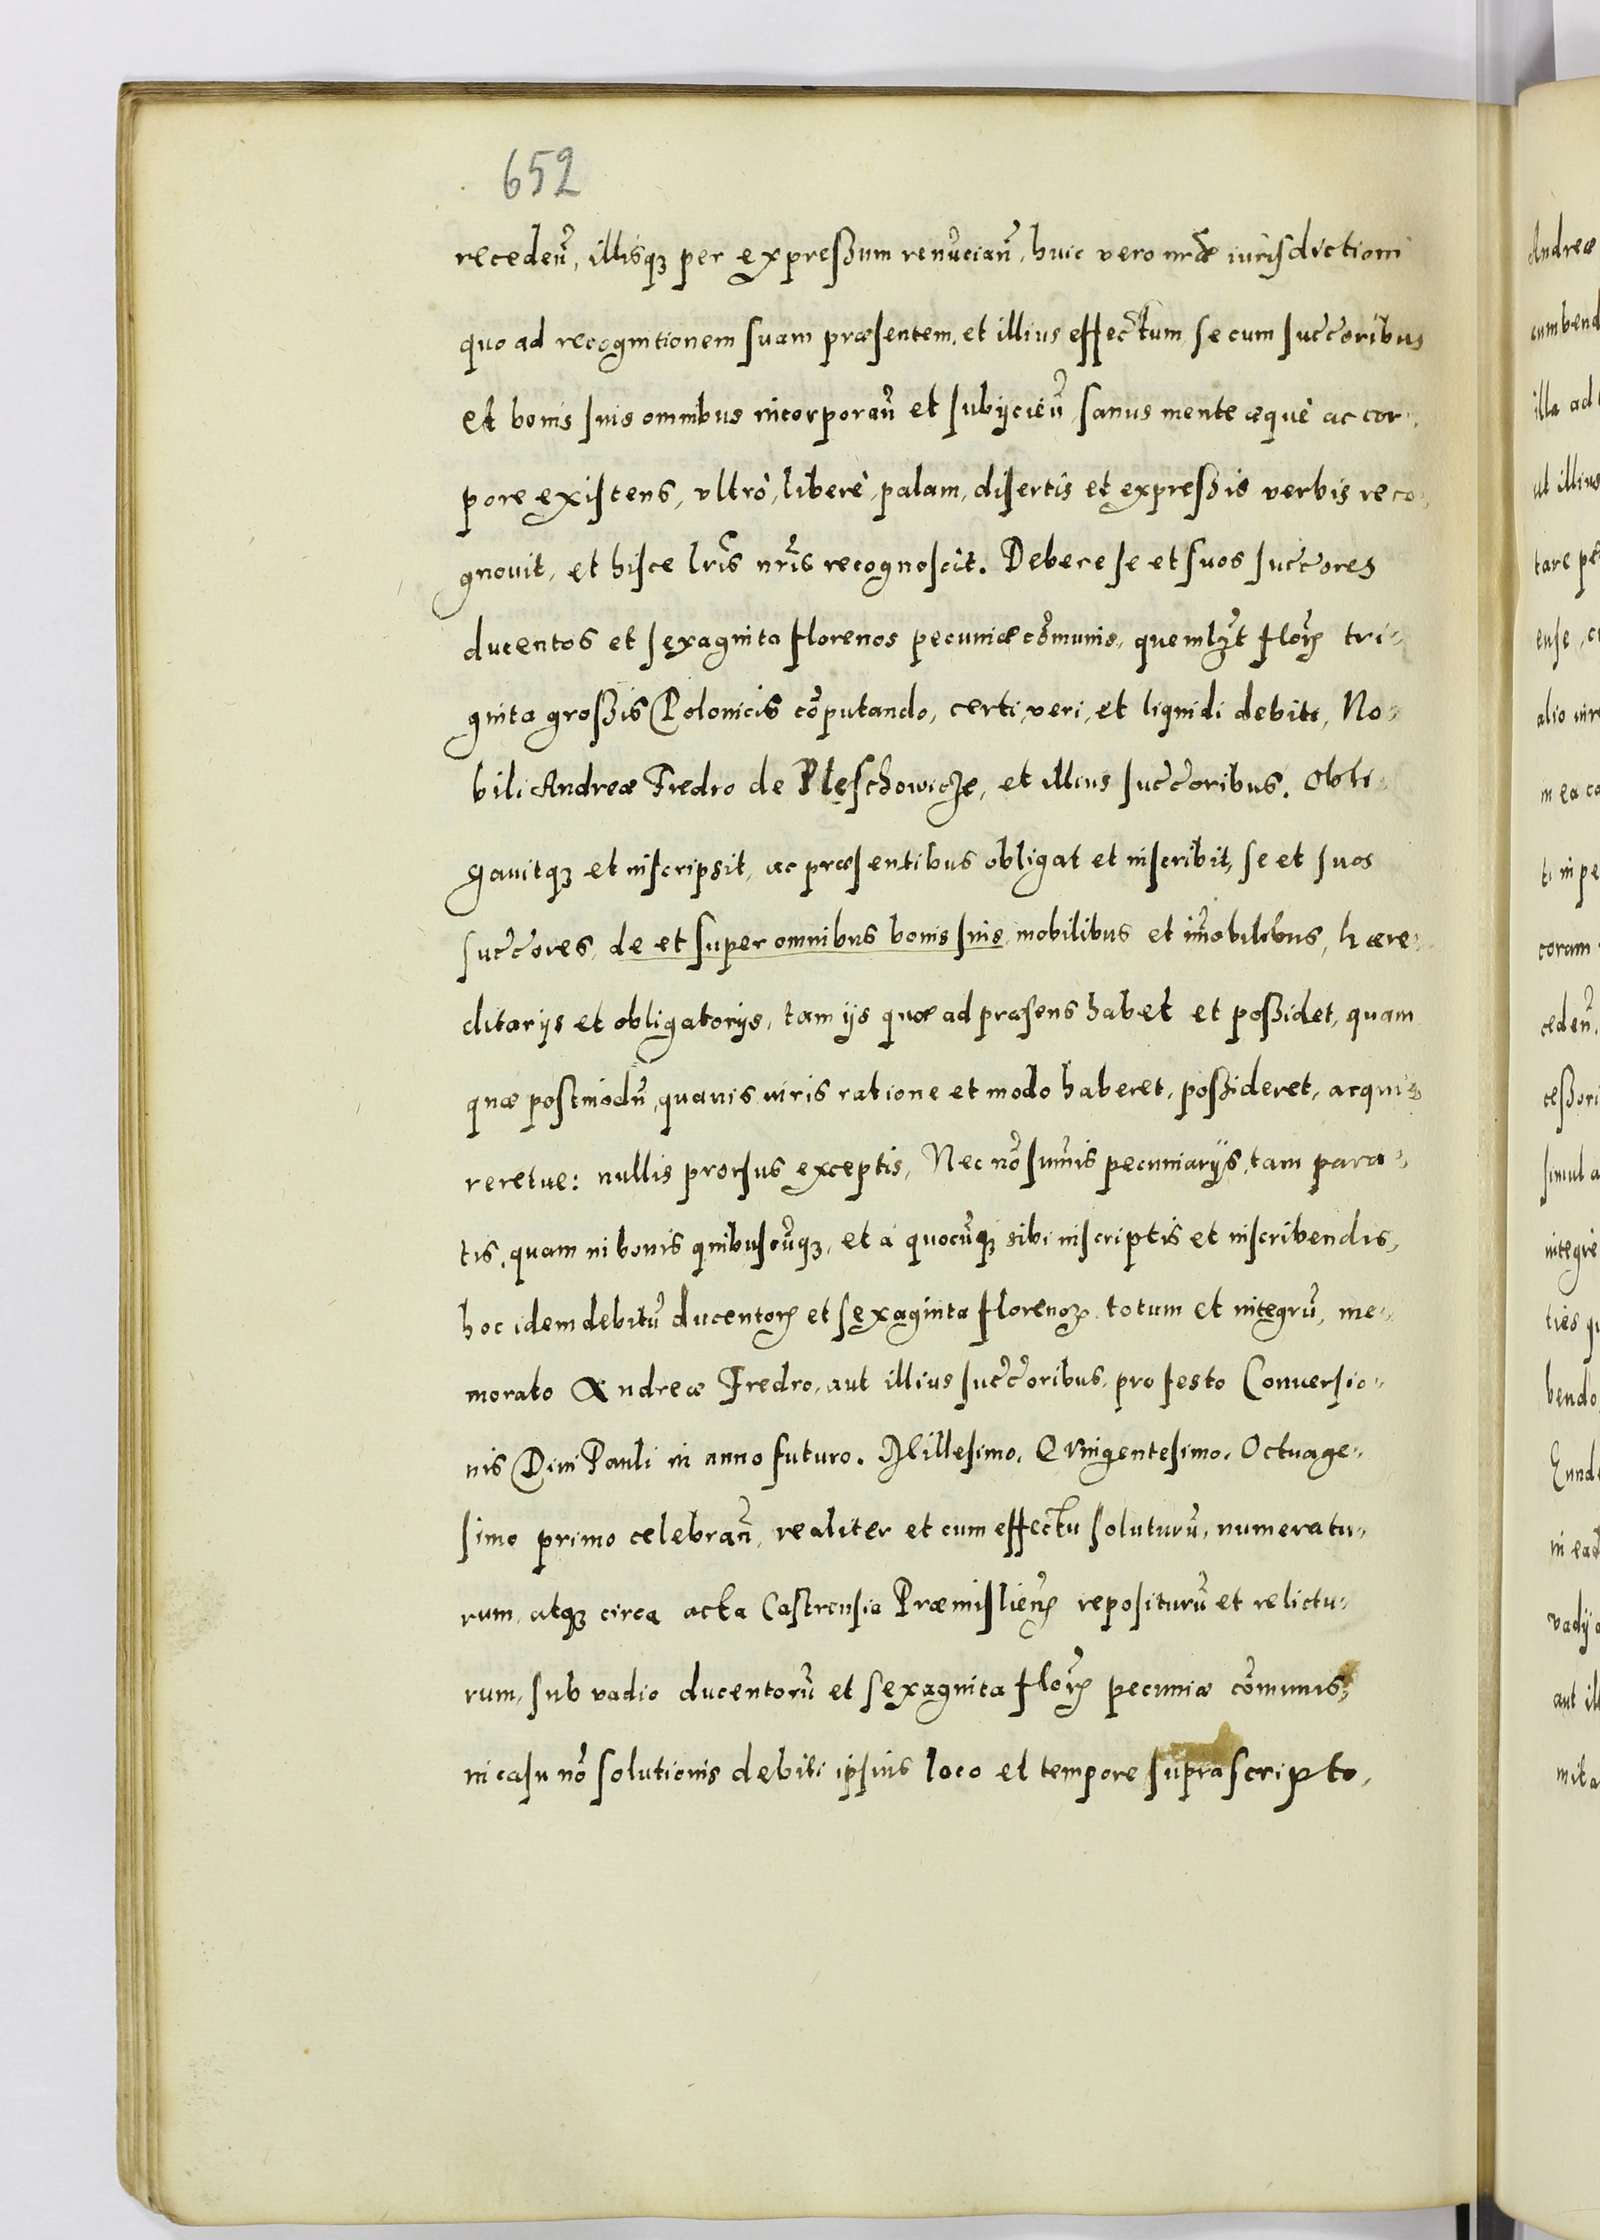 652
recedeñ, illisqꝫ per expreßum renũciañ, huic vero nr̃æ iurisdictioni
quo ad recognitionem suam præsentem, et illius effectum, se cum succ̃oribus
et bonis suis omnibus incorporañ et subijcieñ, sanus mente æquè ac cor-
pore existens, vltrò, liberè, palam, disertis et expreßis verbis reco-
gnouit, et hisce lr̃is nr̃is recognoscit. Debere se et suos succ̃ores
ducentos et sexaginta florenos pecuniæ cõmunis, quemlꝫt floꝝ tri-
ginta großis Polonicis cõputando, certi, veri, et liquidi debiti, No-
bili Andreæ Fredro de Pleschowicze, et illius succ̃oribus. Obli-
gauitqꝫ et inscripsit, ac præsentibus obligat et inscribit, se et suos
succ̃ores, de et super omnibus bonis suis mobilibus et im̃obilibus, hære-
ditarijs et obligatorijs, tam ijs quæ ad præsens habet et poßidet, quam
quæ postmodũ, quauis iuris ratione et modo haberet, poßideret, acqui-
reretue: nullis prorsus exceptis, Nec nõ sum̃is pecuniarijs, tam para-
tis, quam in bonis quibuscũqꝫ, et à quocũqꝫ sibi inscriptis et inscribendis,
hoc idem debitũ ducentoꝝ et sexaginta florenoꝝ totum et integrũ, me-
morato Andreæ Fredro, aut illius succ̃oribus, pro festo Conuersio-
nis Diui Pauli in anno futuro. Millesimo, Quingentesimo, Octuage-
simo primo celebrañ, realiter et cum effectu soluturũ, numeratu-
rum, atqꝫ circa acta Castrensia Præmislieñ repositurũ et relictu-
rum, sub vadio ducentorũ et sexaginta floꝝ pecuniæ cõmunis,
in casu nõ solutionis debiti ipsius loco et tempore suprascripto,